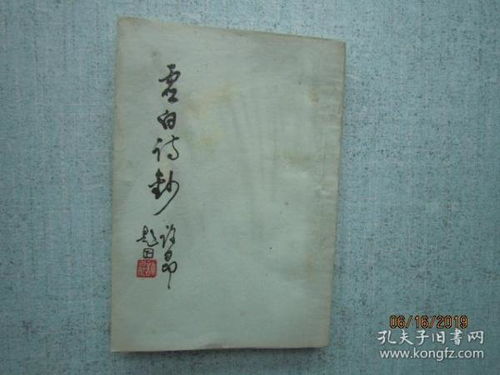 虚白诗钞
06/16/2019
孔夫子旧书网
www.kongfz.com